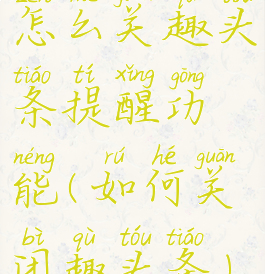 怎么关趣头
tiáo tí xǐng gōng
条提醒功
néng rú hé guān
能(如何关
bì qù tóu tiáo
闭趣头条)